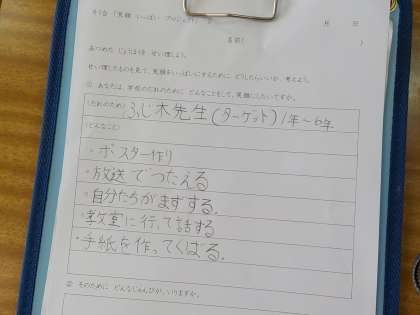 そう合「笑顔 いっぱい プロジェクト」
月　日
名前(　)
あつめた じょうほうを せい理しよう。
せい理したものを見て、笑顔をいっぱいにするために どうしたらいいか、考えよう。
① あなたは、学校のだれのために、どんなことをして、笑顔にしたいですか。
(だれのため) ふじ木先生(ターゲット)1年～6年
(どんなこと)
・ポスター作り
・放送でつたえる
・自分たちがまずする.
・教室に行って話する
・手紙を作ってくばる.
② そのために どんなじゅんびが、いりますか。